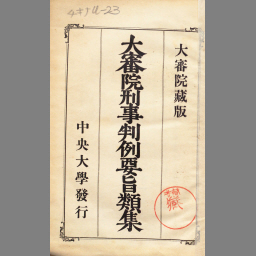 大審院藏版
大審院刑事判例要旨類集
中央大學發行